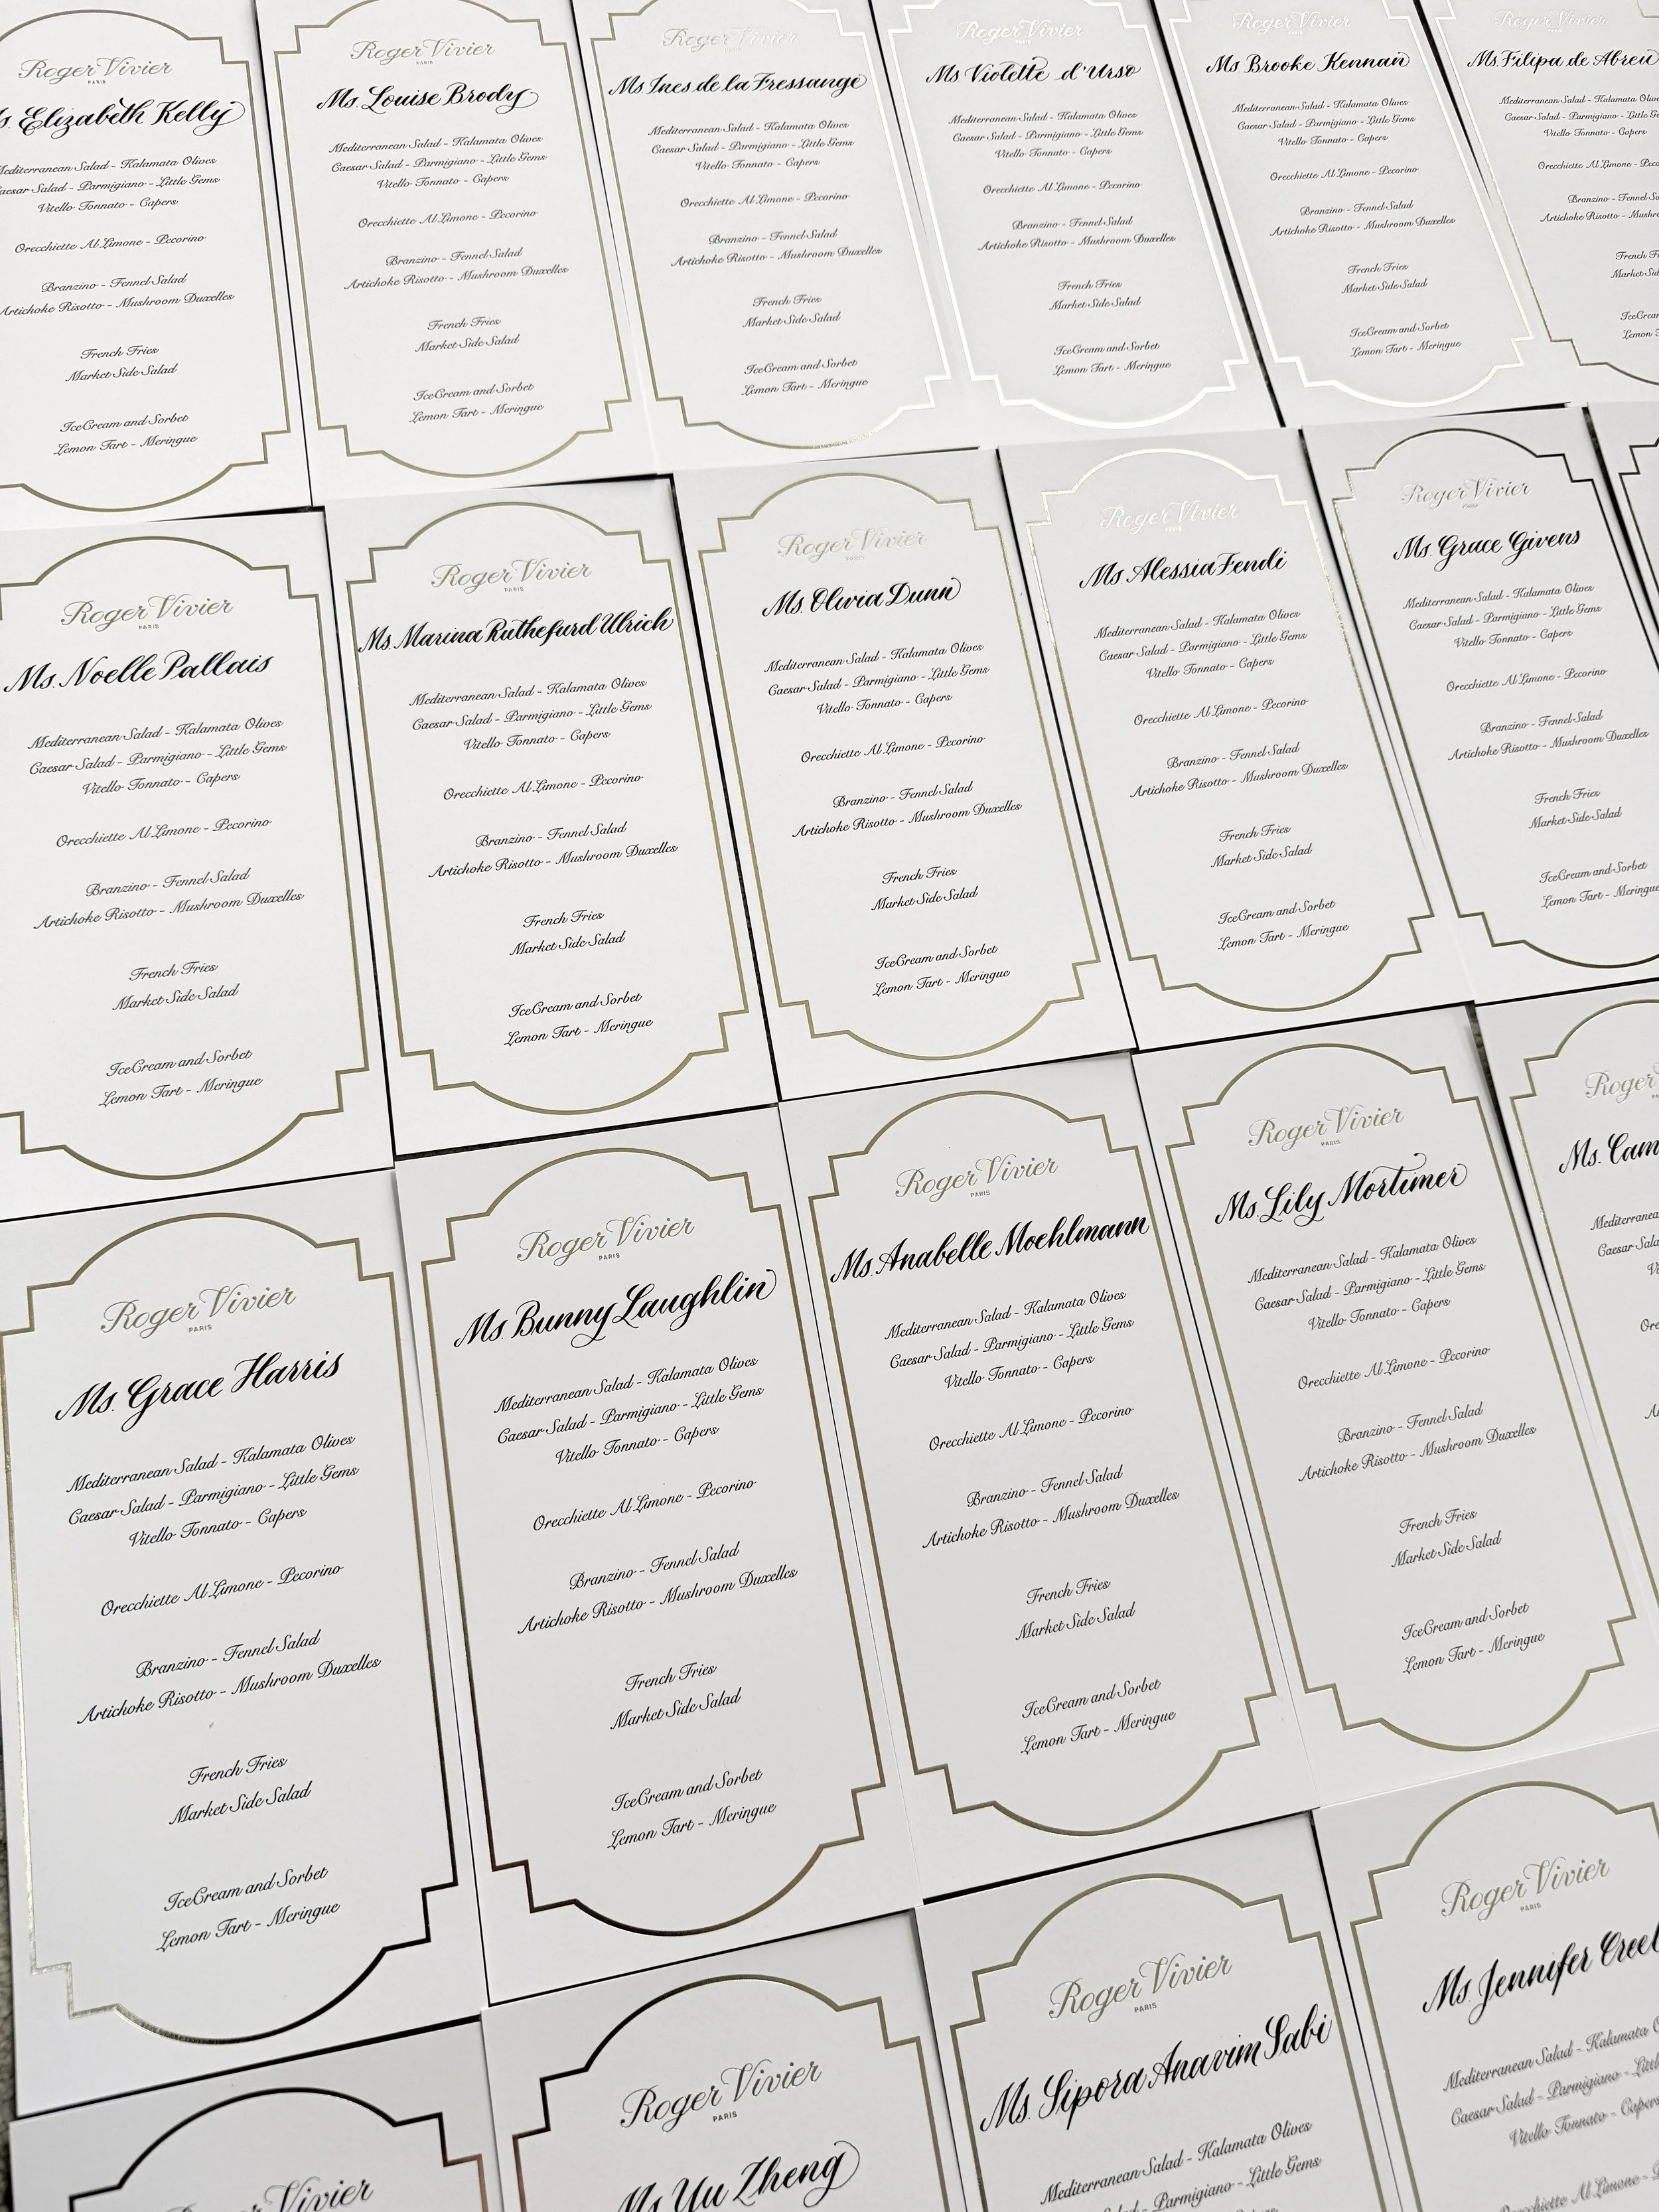 Roger Vivier
PARIS
Elizabeth Kelly
Mediterranean Salad - Kalamata Olives
Caesar Salad - Parmigiano - Little Gems
Vitello Tonnato - Capers
Orecchiette Al Limone - Pecorino
Branzino - Fennel Salad
Artichoke Risotto - Mushroom Duxelles
French Fries
Market Side Salad
Ice Cream and Sorbet
Lemon Tart - Meringue
Roger Vivier
PARIS
Ms. Louise Brody
Mediterranean Salad - Kalamata Olives
Caesar Salad - Parmigiano - Little Gems
Vitello Tonnato - Capers
Orecchiette Al Limone - Pecorino
Branzino - Fennel Salad
Artichoke Risotto - Mushroom Duxelles
French Fries
Market Side Salad
Ice Cream and Sorbet
Lemon Tart - Meringue
Roger Vivier
PARIS
Ms. Ines de la Fressange
Mediterranean Salad - Kalamata Olives
Caesar Salad - Parmigiano - Little Gems
Vitello Tonnato - Capers
Orecchiette Al Limone - Pecorino
Branzino - Fennel Salad
Artichoke Risotto - Mushroom Duxelles
French Fries
Market Side Salad
Ice Cream and Sorbet
Lemon Tart - Meringue
Roger Vivier
PARIS
Ms. Violette d'Urso
Mediterranean Salad - Kalamata Olives
Caesar Salad - Parmigiano - Little Gems
Vitello Tonnato - Capers
Orecchiette Al Limone - Pecorino
Branzino - Fennel Salad
Artichoke Risotto - Mushroom Duxelles
French Fries
Market Side Salad
Ice Cream and Sorbet
Lemon Tart - Meringue
Roger Vivier
PARIS
Ms. Brooke Kennan
Mediterranean Salad - Kalamata Olives
Caesar Salad - Parmigiano - Little Gems
Vitello Tonnato - Capers
Orecchiette Al Limone - Pecorino
Branzino - Fennel Salad
Artichoke Risotto - Mushroom Duxelles
French Fries
Market Side Salad
Ice Cream and Sorbet
Lemon Tart - Meringue
Roger Vivier
Ms. Filipa de Abreu
Mediterranean Salad - Kalamata
Caesar Salad - Parmigiano - Little
Vitello Tonnato - Capers
Orecchiette Al Limone
Branzino - Fennel
Artichoke Risotto
French
Market Side
Lemon
Roger Vivier
PARIS
Ms. Noelle Pallais
Mediterranean Salad - Kalamata Olives
Caesar Salad - Parmigiano - Little Gems
Vitello Tonnato - Capers
Orecchiette Al Limone - Pecorino
Branzino - Fennel Salad
Artichoke Risotto - Mushroom Duxelles
French Fries
Market Side Salad
Ice Cream and Sorbet
Lemon Tart - Meringue
Roger Vivier
PARIS
Ms. Marina Rutherfurd Ulrich
Mediterranean Salad - Kalamata Olives
Caesar Salad - Parmigiano - Little Gems
Vitello Tonnato - Capers
Orecchiette Al Limone - Pecorino
Branzino - Fennel Salad
Artichoke Risotto - Mushroom Duxelles
French Fries
Market Side Salad
Ice Cream and Sorbet
Lemon Tart - Meringue
Roger Vivier
PARIS
Ms. Olivia Dunn
Mediterranean Salad - Kalamata Olives
Caesar Salad - Parmigiano - Little Gems
Vitello Tonnato - Capers
Orecchiette Al Limone - Pecorino
Branzino - Fennel Salad
Artichoke Risotto - Mushroom Duxelles
French Fries
Market Side Salad
Ice Cream and Sorbet
Lemon Tart - Meringue
Roger Vivier
PARIS
Ms. Alessia Fendi
Mediterranean Salad - Kalamata Olives
Caesar Salad - Parmigiano - Little Gems
Vitello Tonnato - Capers
Orecchiette Al Limone - Pecorino
Branzino - Fennel Salad
Artichoke Risotto - Mushroom Duxelles
French Fries
Market Side Salad
Ice Cream and Sorbet
Lemon Tart - Meringue
Roger Vivier
PARIS
Ms. Grace Givens
Mediterranean Salad - Kalamata Olives
Caesar Salad - Parmigiano - Little Gems
Vitello Tonnato - Capers
Orecchiette Al Limone - Pecorino
Branzino - Fennel Salad
Artichoke Risotto - Mushroom Duxelles
French Fries
Market Side Salad
Ice Cream and Sorbet
Lemon Tart - Meringue
Roger Vivier
PARIS
Ms. Grace Harris
Mediterranean Salad - Kalamata Olives
Caesar Salad - Parmigiano - Little Gems
Vitello Tonnato - Capers
Orecchiette Al Limone - Pecorino
Branzino - Fennel Salad
Artichoke Risotto - Mushroom Duxelles
French Fries
Market Side Salad
Ice Cream and Sorbet
Lemon Tart - Meringue
Roger Vivier
PARIS
Ms. Bunny Laughlin
Mediterranean Salad - Kalamata Olives
Caesar Salad - Parmigiano - Little Gems
Vitello Tonnato - Capers
Orecchiette Al Limone - Pecorino
Branzino - Fennel Salad
Artichoke Risotto - Mushroom Duxelles
French Fries
Market Side Salad
Ice Cream and Sorbet
Lemon Tart - Meringue
Roger Vivier
PARIS
Ms. Anabelle Moehlmann
Mediterranean Salad - Kalamata Olives
Caesar Salad - Parmigiano - Little Gems
Vitello Tonnato - Capers
Orecchiette Al Limone - Pecorino
Branzino - Fennel Salad
Artichoke Risotto - Mushroom Duxelles
French Fries
Market Side Salad
Ice Cream and Sorbet
Lemon Tart - Meringue
Roger Vivier
PARIS
Ms. Lily Mortimer
Mediterranean Salad - Kalamata Olives
Caesar Salad - Parmigiano - Little Gems
Vitello Tonnato - Capers
Orecchiette Al Limone - Pecorino
Branzino - Fennel Salad
Artichoke Risotto - Mushroom Duxelles
French Fries
Market Side Salad
Ice Cream and Sorbet
Lemon Tart - Meringue
Roger
Ms. Cam
Mediterranean
Caesar
Roger Vivier
Roger Vivier
PARIS
Ms. Yu Zheng
Roger Vivier
PARIS
Ms. Sipora Anavim Sabi
Mediterranean Salad - Kalamata Olives
Caesar Salad - Parmigiano - Little Gems
Roger Vivier
PARIS
Ms. Jennifer Creel
Mediterranean Salad - Kalamata
Caesar Salad - Parmigiano - Little
Vitello Tonnato - Capers
Orecchiette Al Limone -